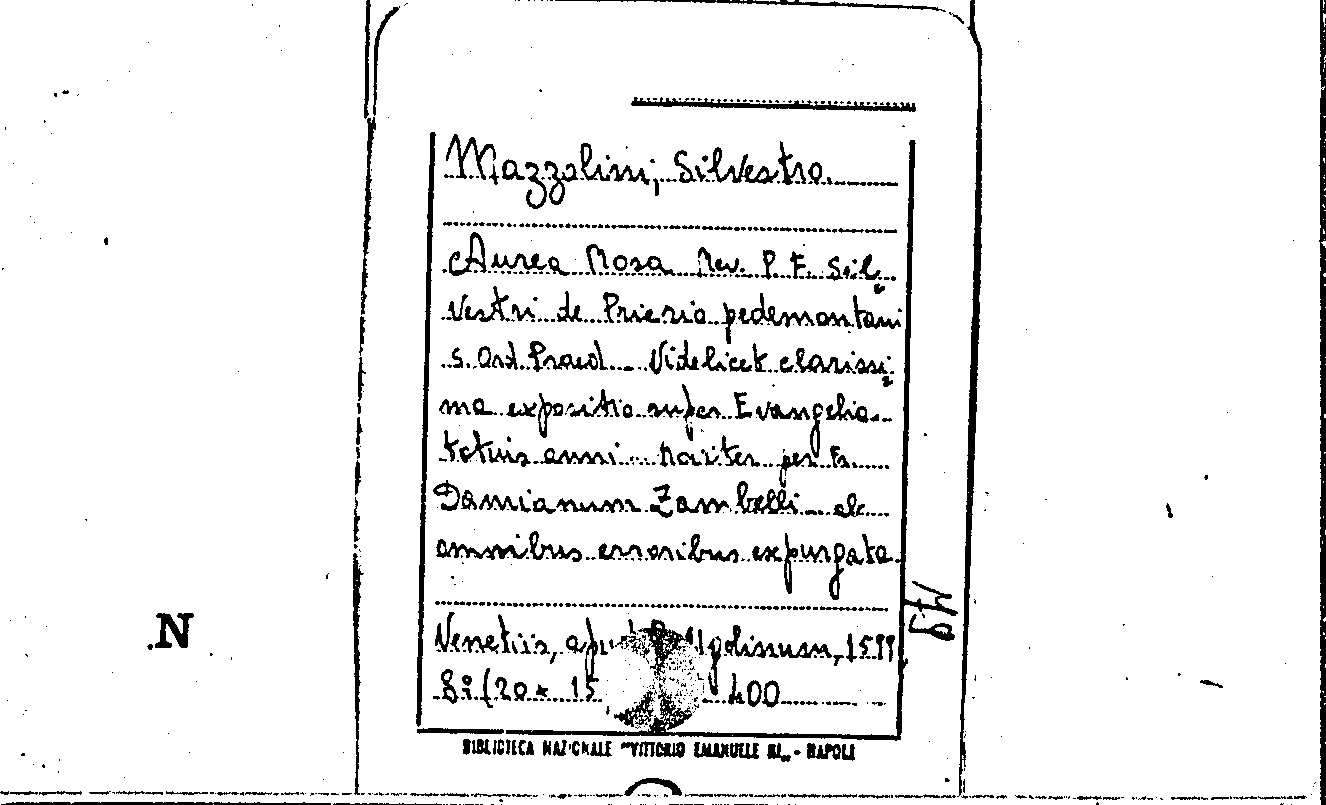 Mazzolini, Silvestro.
Aurea Rosa Rev. P. F. Sil=
vestri de Prierio pedemontani
s. Ord. Praed... Videlicet clarissi=
ma expositio super Evangelia..
totius anni ... Noviter per Fr.
Damianum Zambelli... ab
omnibus erroribus expurgata.
Venetiis, Ugolinum, 1599
8° (20 x 15 400
N
BIBLIOTECA NAZIONALE "VITTORIO EMANUELE III„ - NAPOLI